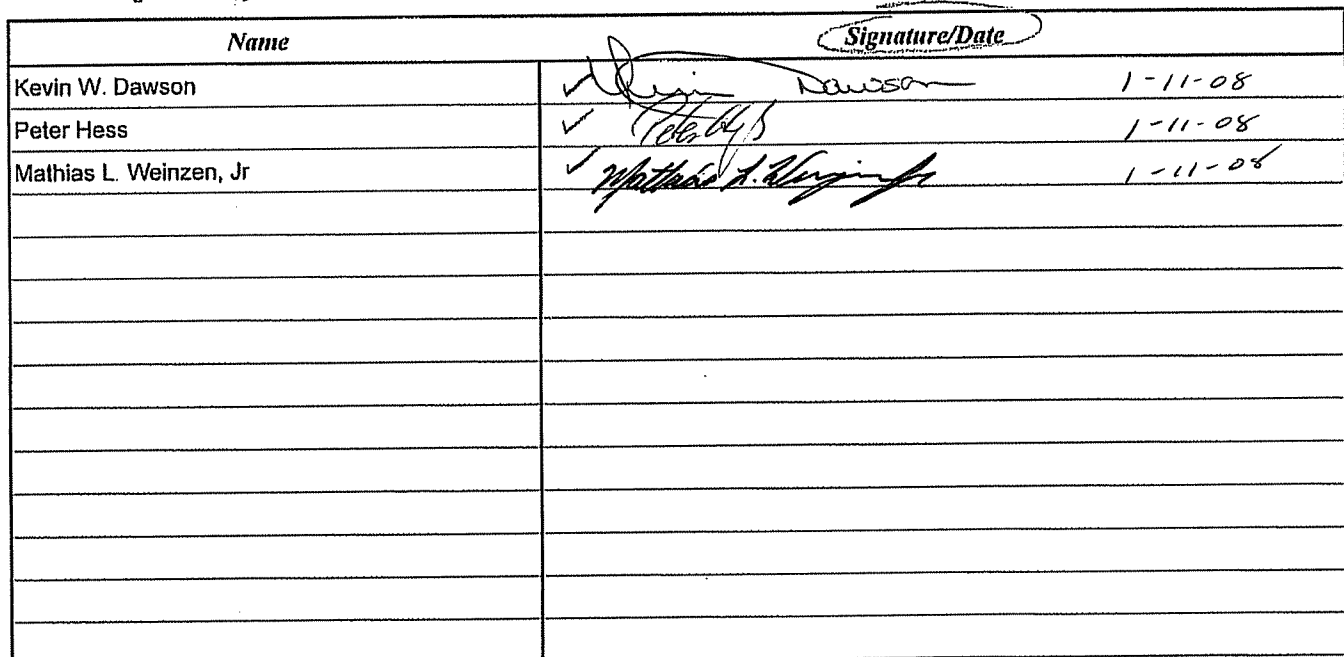 Name Signature/Date
Kevin W. Dawson ✓ Kevin Dawson 1-11-08
Peter Hess ✓ Peter Hess 1-11-08
Mathias L. Weinzen, Jr ✓ Mathias L. Weinzen Jr 1-11-08